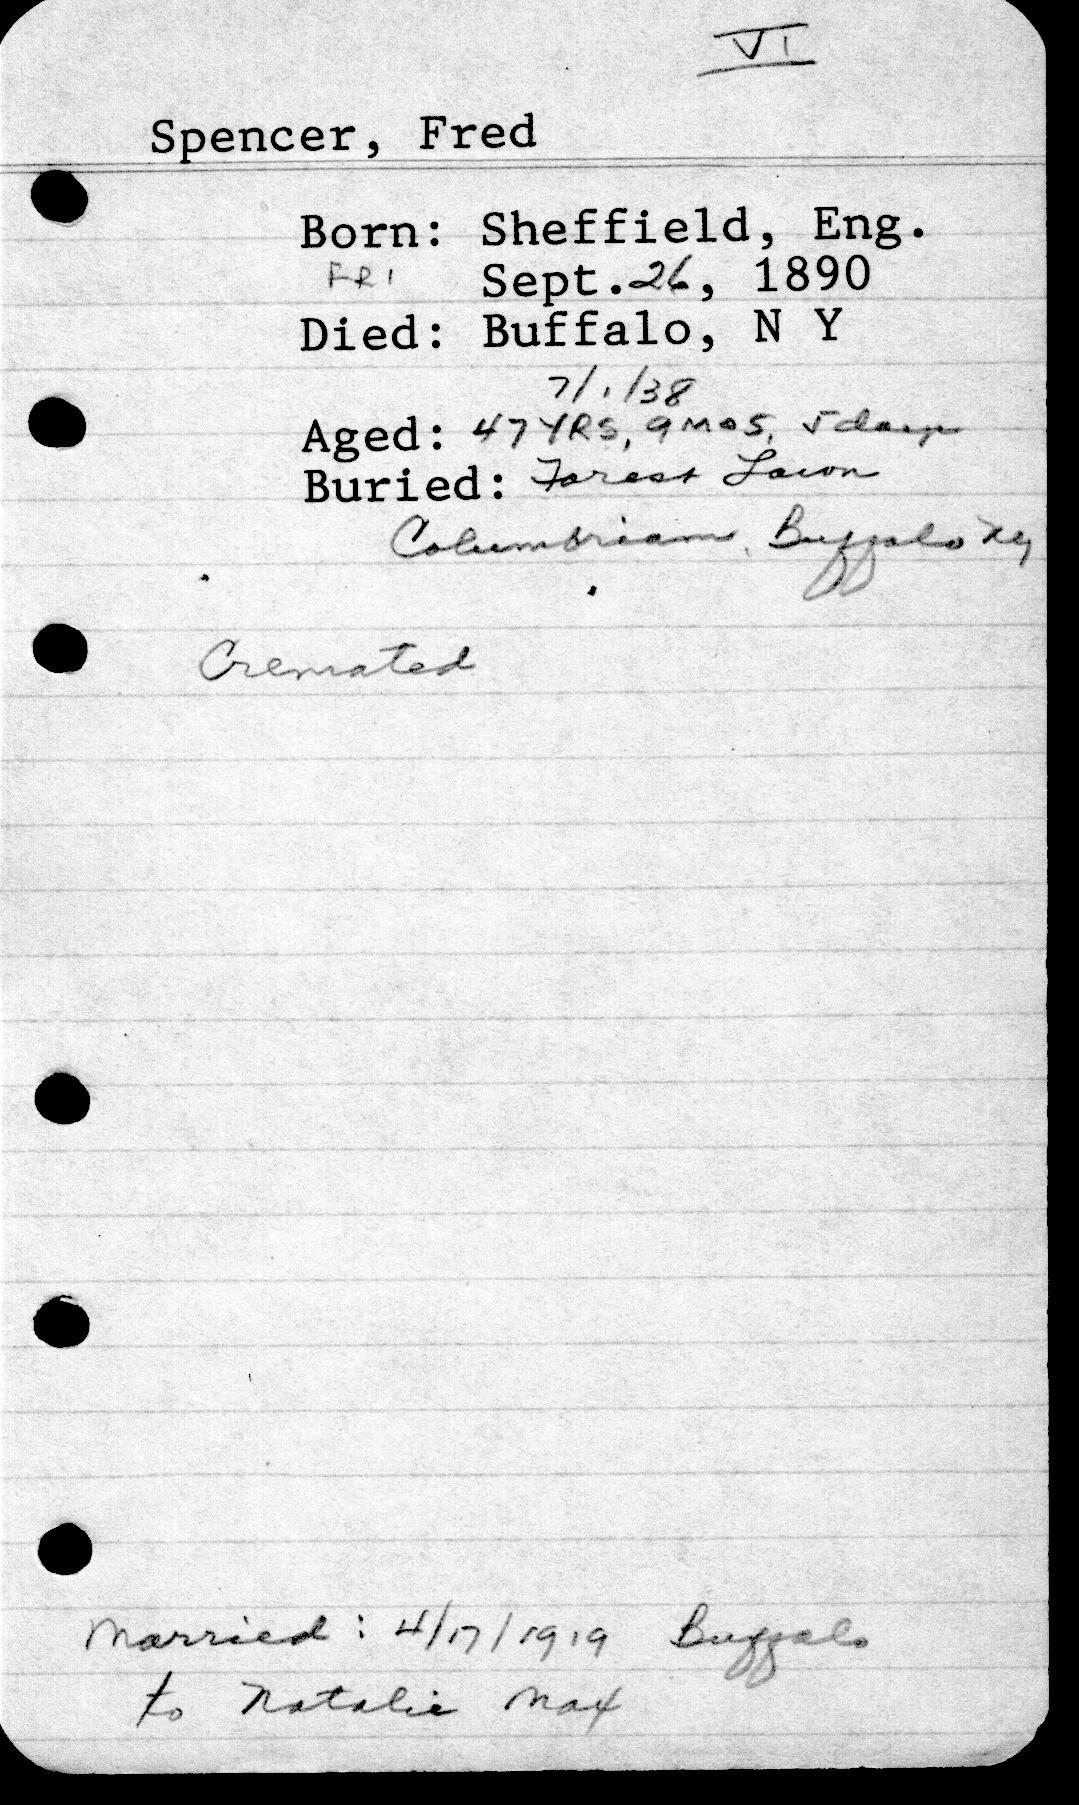 VI
Spencer, Fred
Born: Sheffield, Eng.
FRI Sept. 26, 1890
Died: Buffalo, N Y
7/1/38
Aged: 47 YRS, 9 MOS, 5 days
Buried: Forest Lawn
Columbriam, Buffalo NY
Cremated
Married: 4/17/1919 Buffalo
to Natalie May